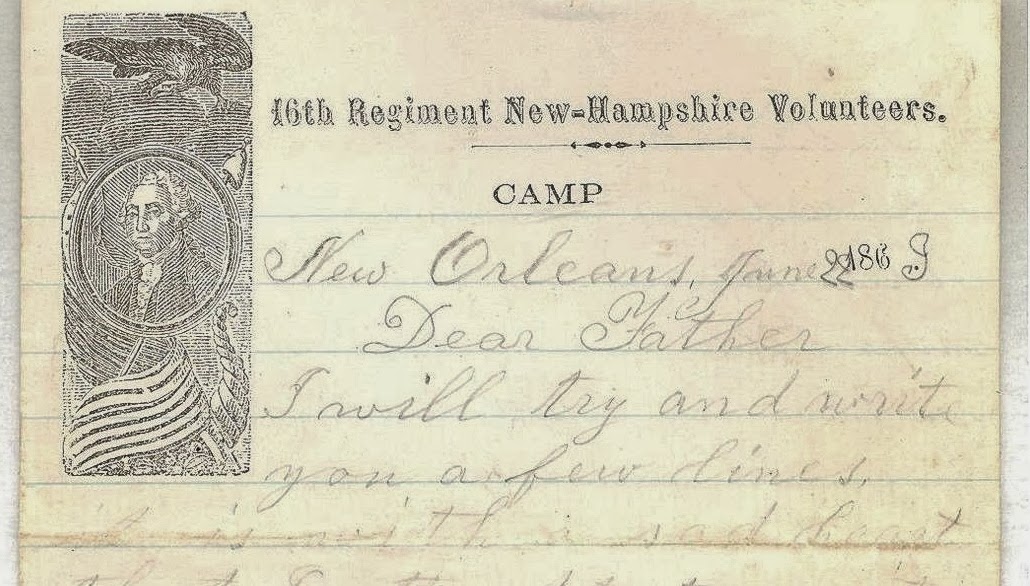 16th Regiment New-Hampshire Volunteers.
CAMP
New Orleans, June 22 1863
Dear Father
I will try and write
you a few lines.
it is with a sad heart
that I